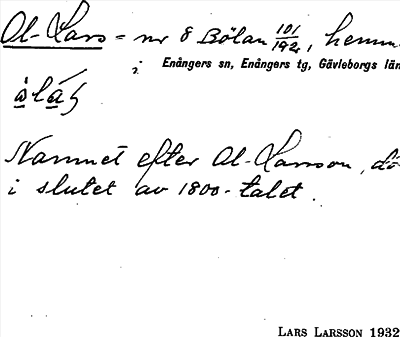 Ol-Lars = nr 8 Bölan 101/192, hemm
i Enångers sn, Enångers tg, Gävleborgs län
Namnet efter Ol-Larsson, dö
i slutet av 1800-talet.
LARS LARSSON 1932